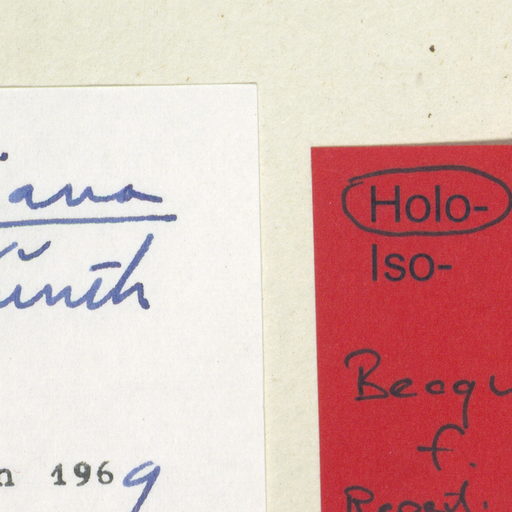 iana
Kunth
n 1969
Holo-
Iso-
Becqu
f.
Repert.